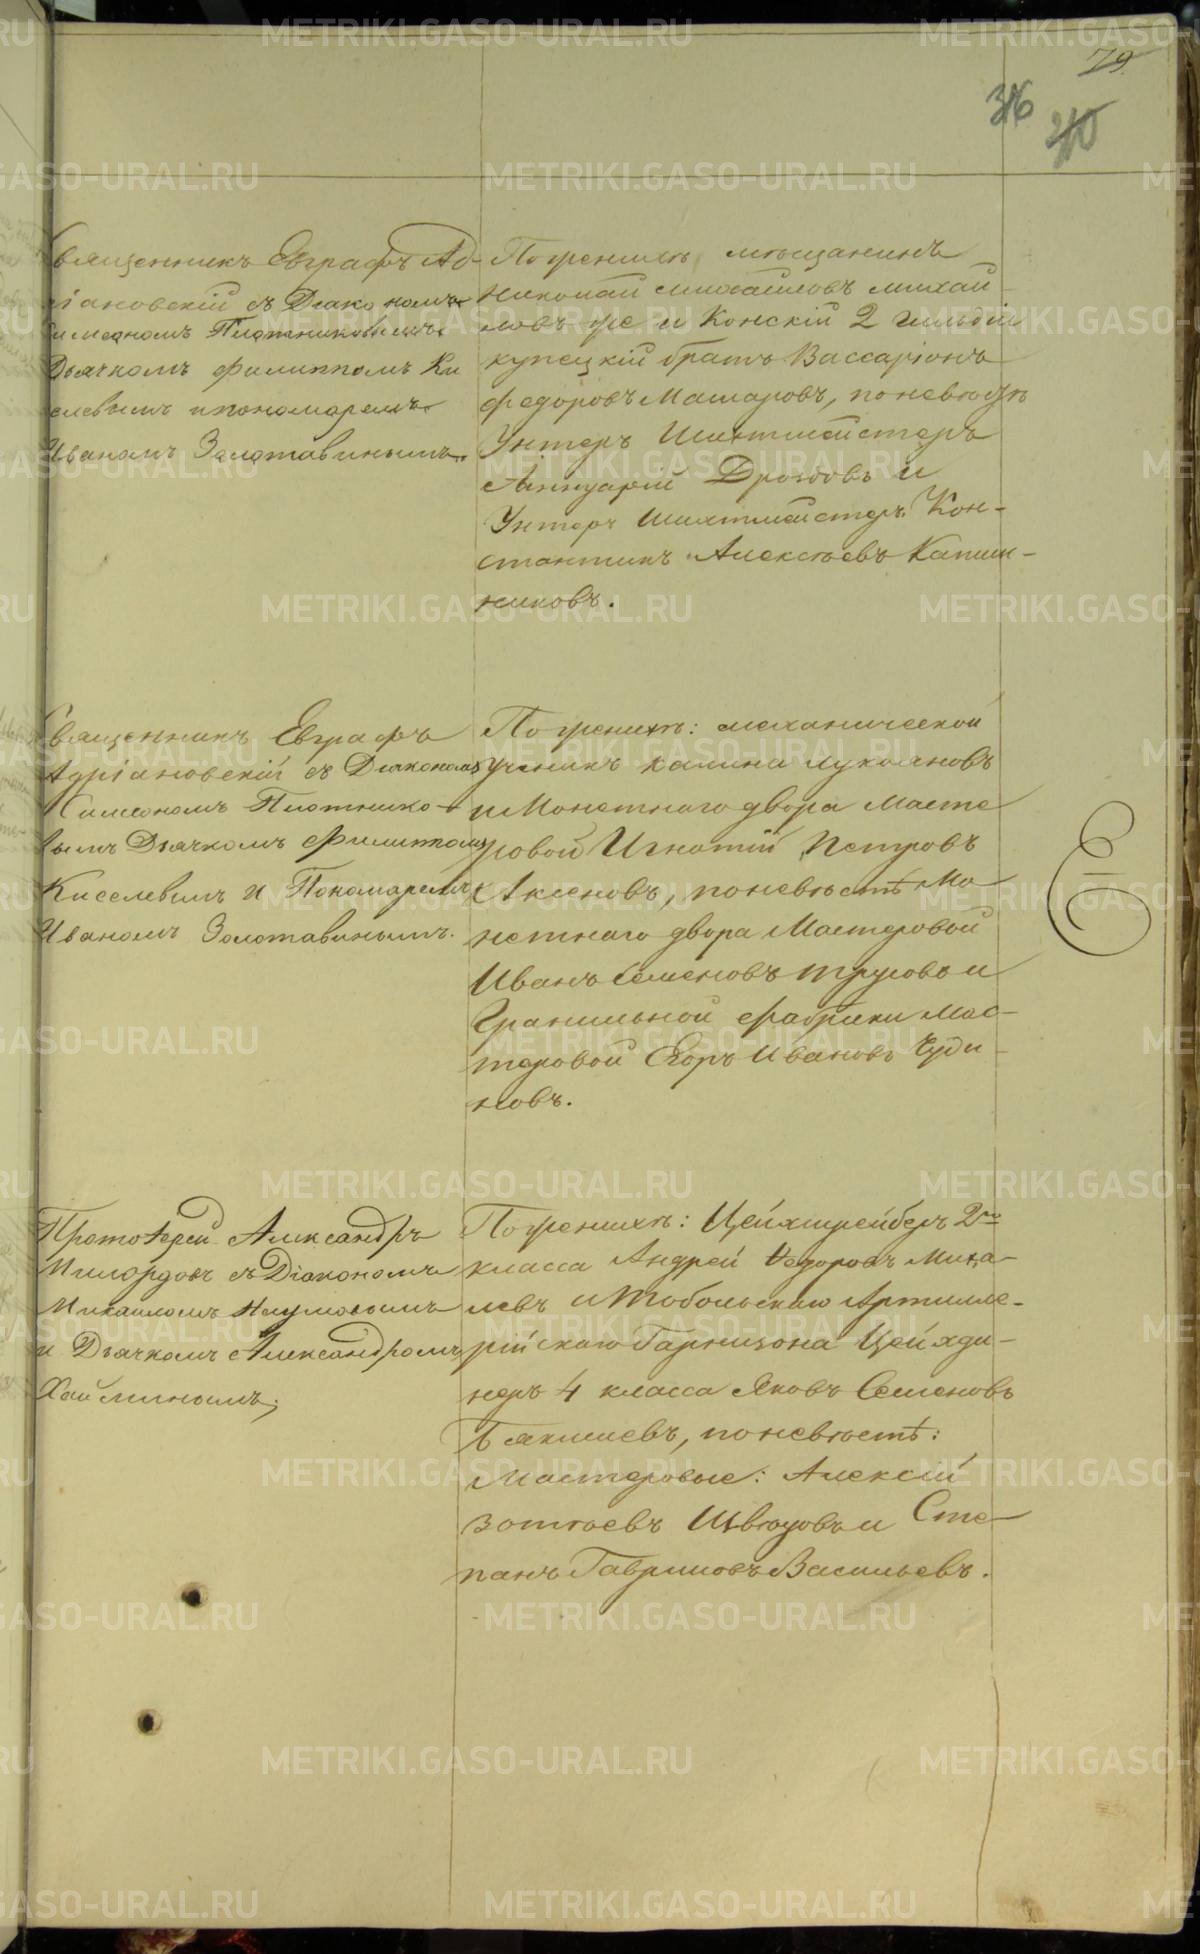 79.
36
40
Священникъ Евграфъ Ад-
ріановскій съ Діакономъ
Симеономъ Плотниковымъ
Дьячкомъ Филиппомъ Ки
селевымъ и пономаремъ
Иваномъ Золотавинымъ.
По женихѣ мѣщанинъ
Николай Михайловъ Михай
ловъ же и Конскій 2 гильдіи
купецкій братъ Вассаріонъ
Федоровъ Машаровъ, по невѣстѣ
Унтеръ Шихтмейстеръ
Аннуарій Дроздовъ и
Унтеръ Шихтмейстеръ Кон-
стантинъ Алексѣевъ Капши-
никовъ.
Священникъ Евграфъ
Адріановскій съ Діакономъ
Симеономъ Плотнико-
вымъ Дьячкомъ Филиппомъ
Киселевымъ и Пономаремъ
Иваномъ Золотавинымъ.
По женихѣ: механической
ученикъ Калина Лукояновъ
и Монетнаго двора Масте
ровой Игнатій Петровъ
Аксеновъ, по невѣстѣ Мо
нетнаго двора Мастеровой
Иванъ Семеновъ Трусовъ и
Гранильной фабрики Мас-
теровой Егоръ Ивановъ Чуди
новъ.
Протоіерей Александръ
Милордовъ съ Діакономъ
Михаиломъ Наумовымъ
и Дьячкомъ Александромъ
Хайминымъ;
По женихѣ: Цейхшрейберъ 2го
класса Андрей Федоровъ Миха-
левъ и Тобольскаго Артилле-
рійскаго Гарнизона Цейхди-
неръ 4 класса Яковъ Семеновъ
Бякишевъ, по невѣстѣ:
Мастеровые: Алексій
Зотѣевъ Швецовъ и Сте-
панъ Гавриловъ Васильевъ.
METRIKI.GASO-URAL.RU